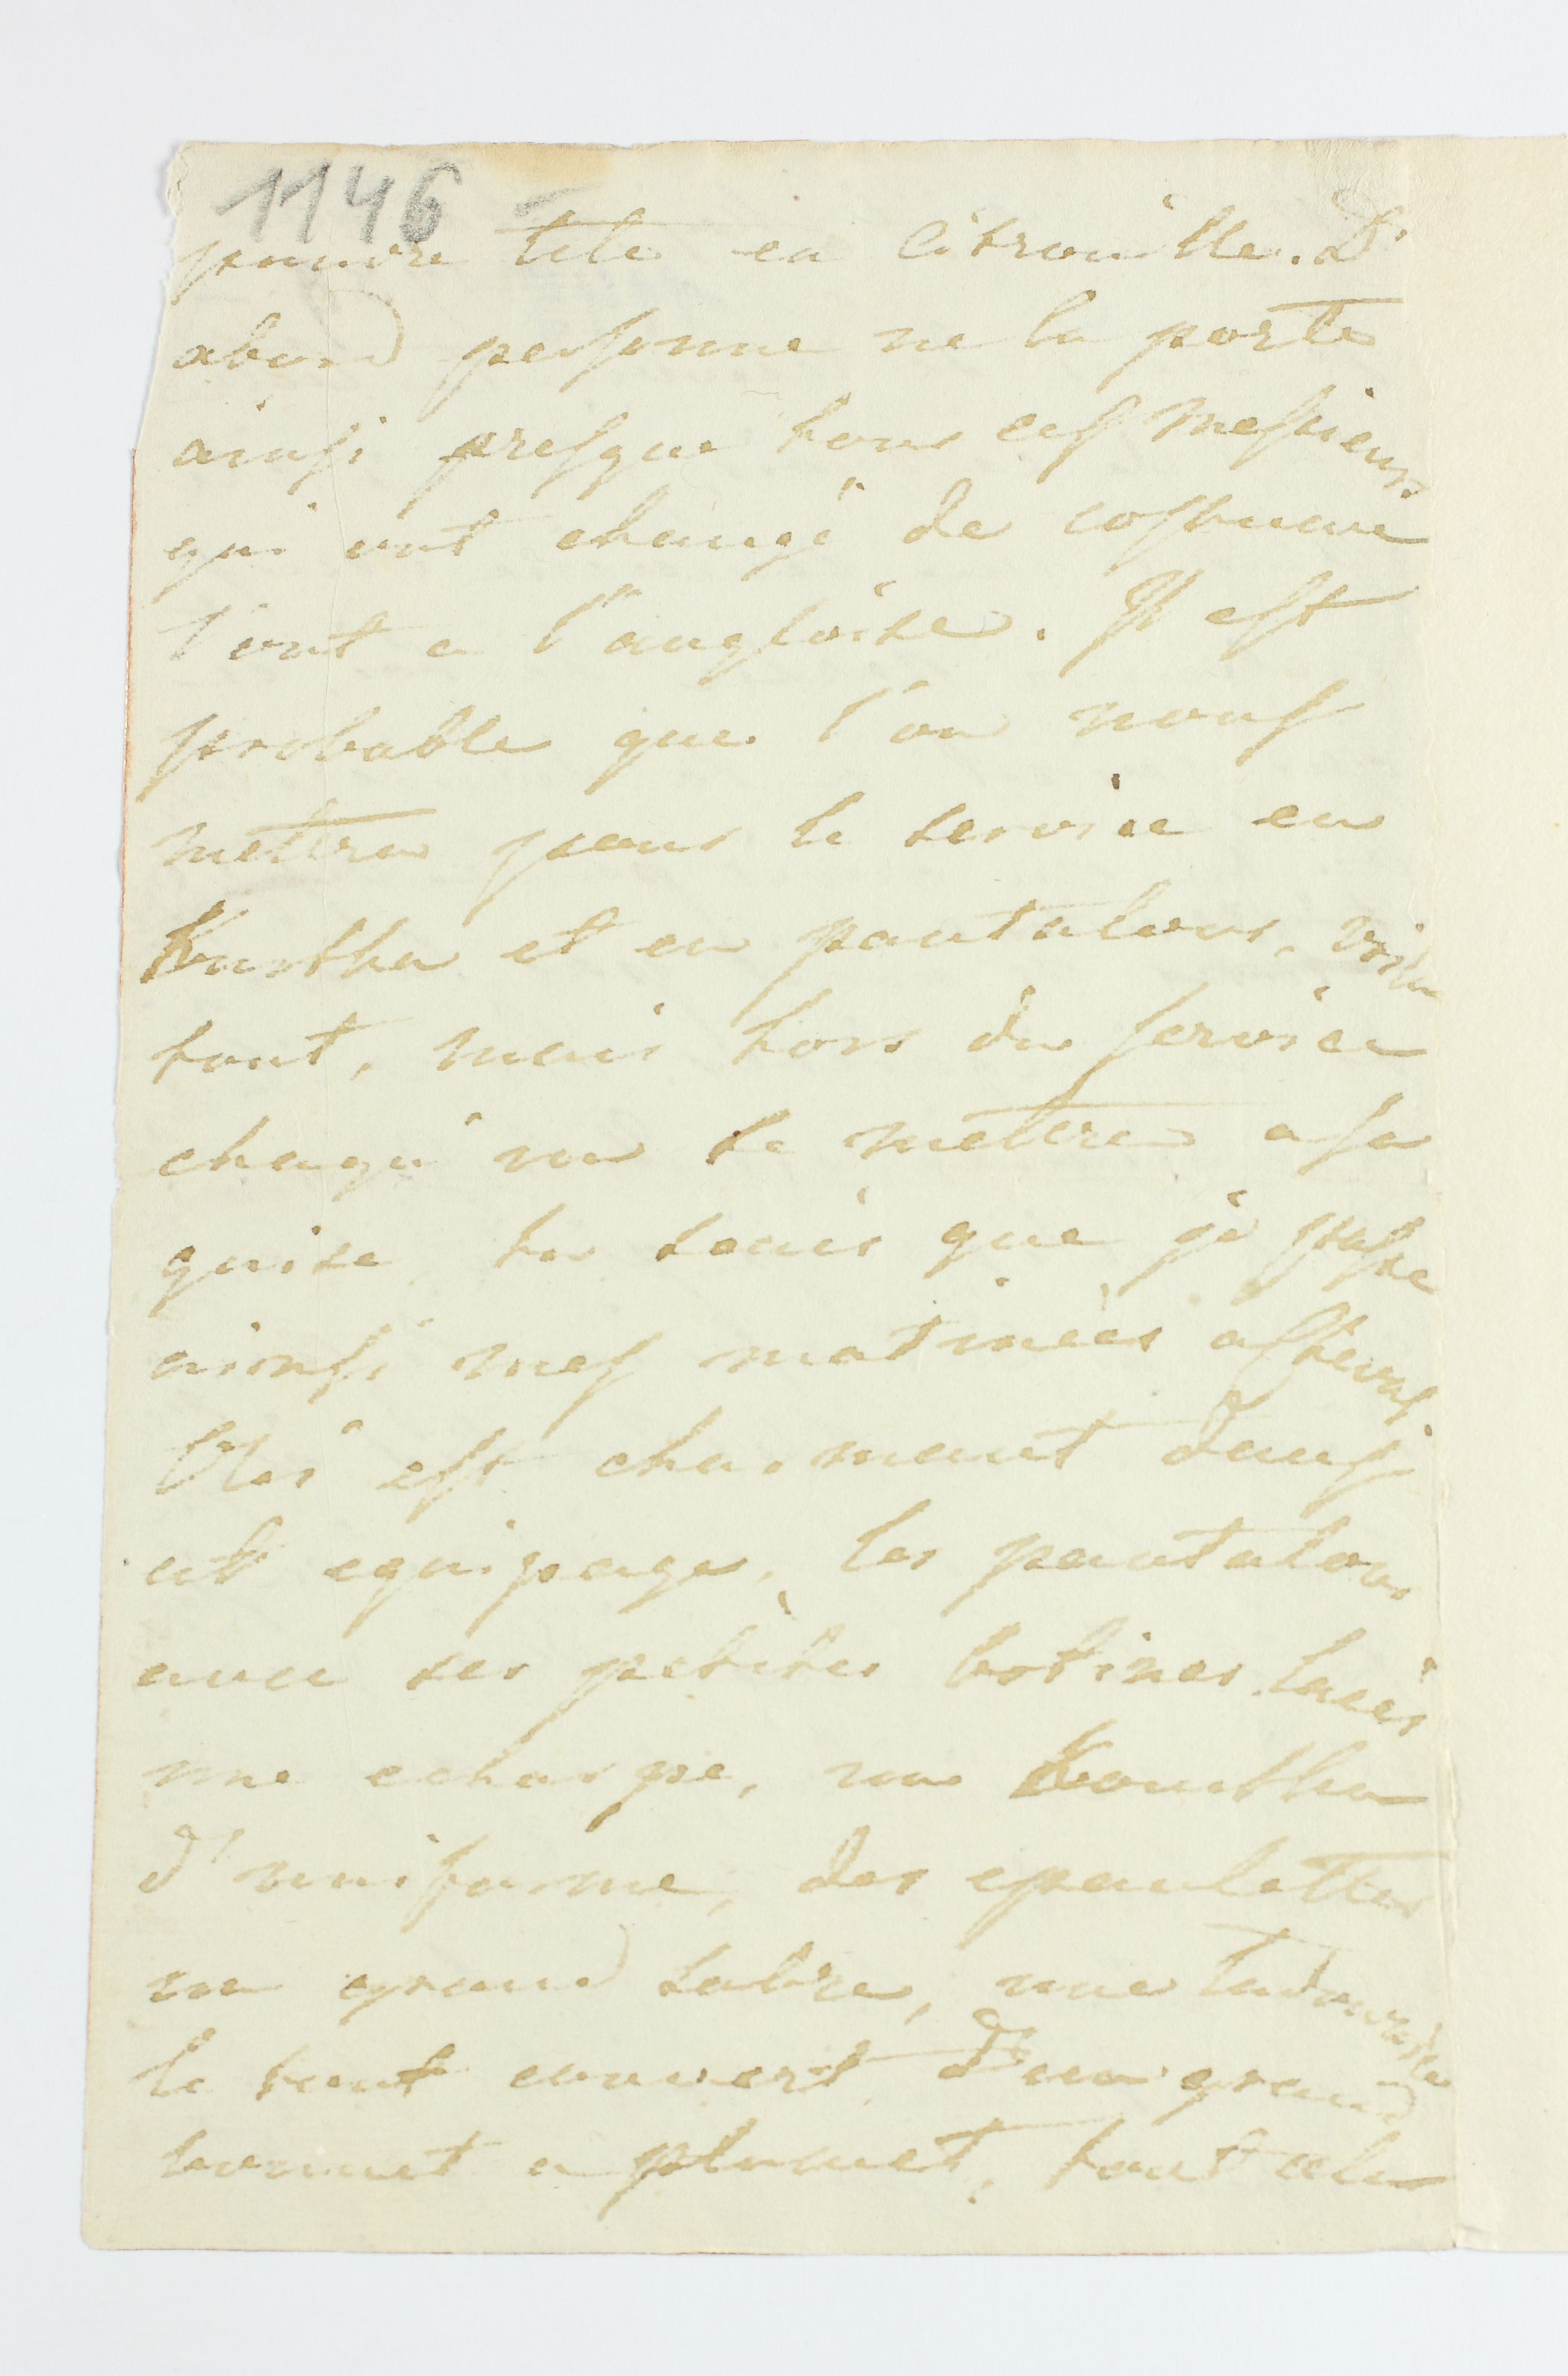 1146
pauvre tete en Citrouille. D'
abord personne ne la porte
ainsi presque tous ces Messieurs
qui ont changé de costume
l'ont a l'angloise. Il est
probable que l'on nous
mettra pour le service en
Kurtka et en pantalons, voila
tout, mais hors du service
chaqu'un se mettra a sa
guise, tu sais que je passe
ainsi mes matinées
est charmant dans
cet equipage, les pantalons
avec ses petites botines lacés
une echarpe, un Kourtka
d'uniforme, des epaulettes
un grand sabre, une
le tout couvert d'un grand
bonnet a plumet, tout cela